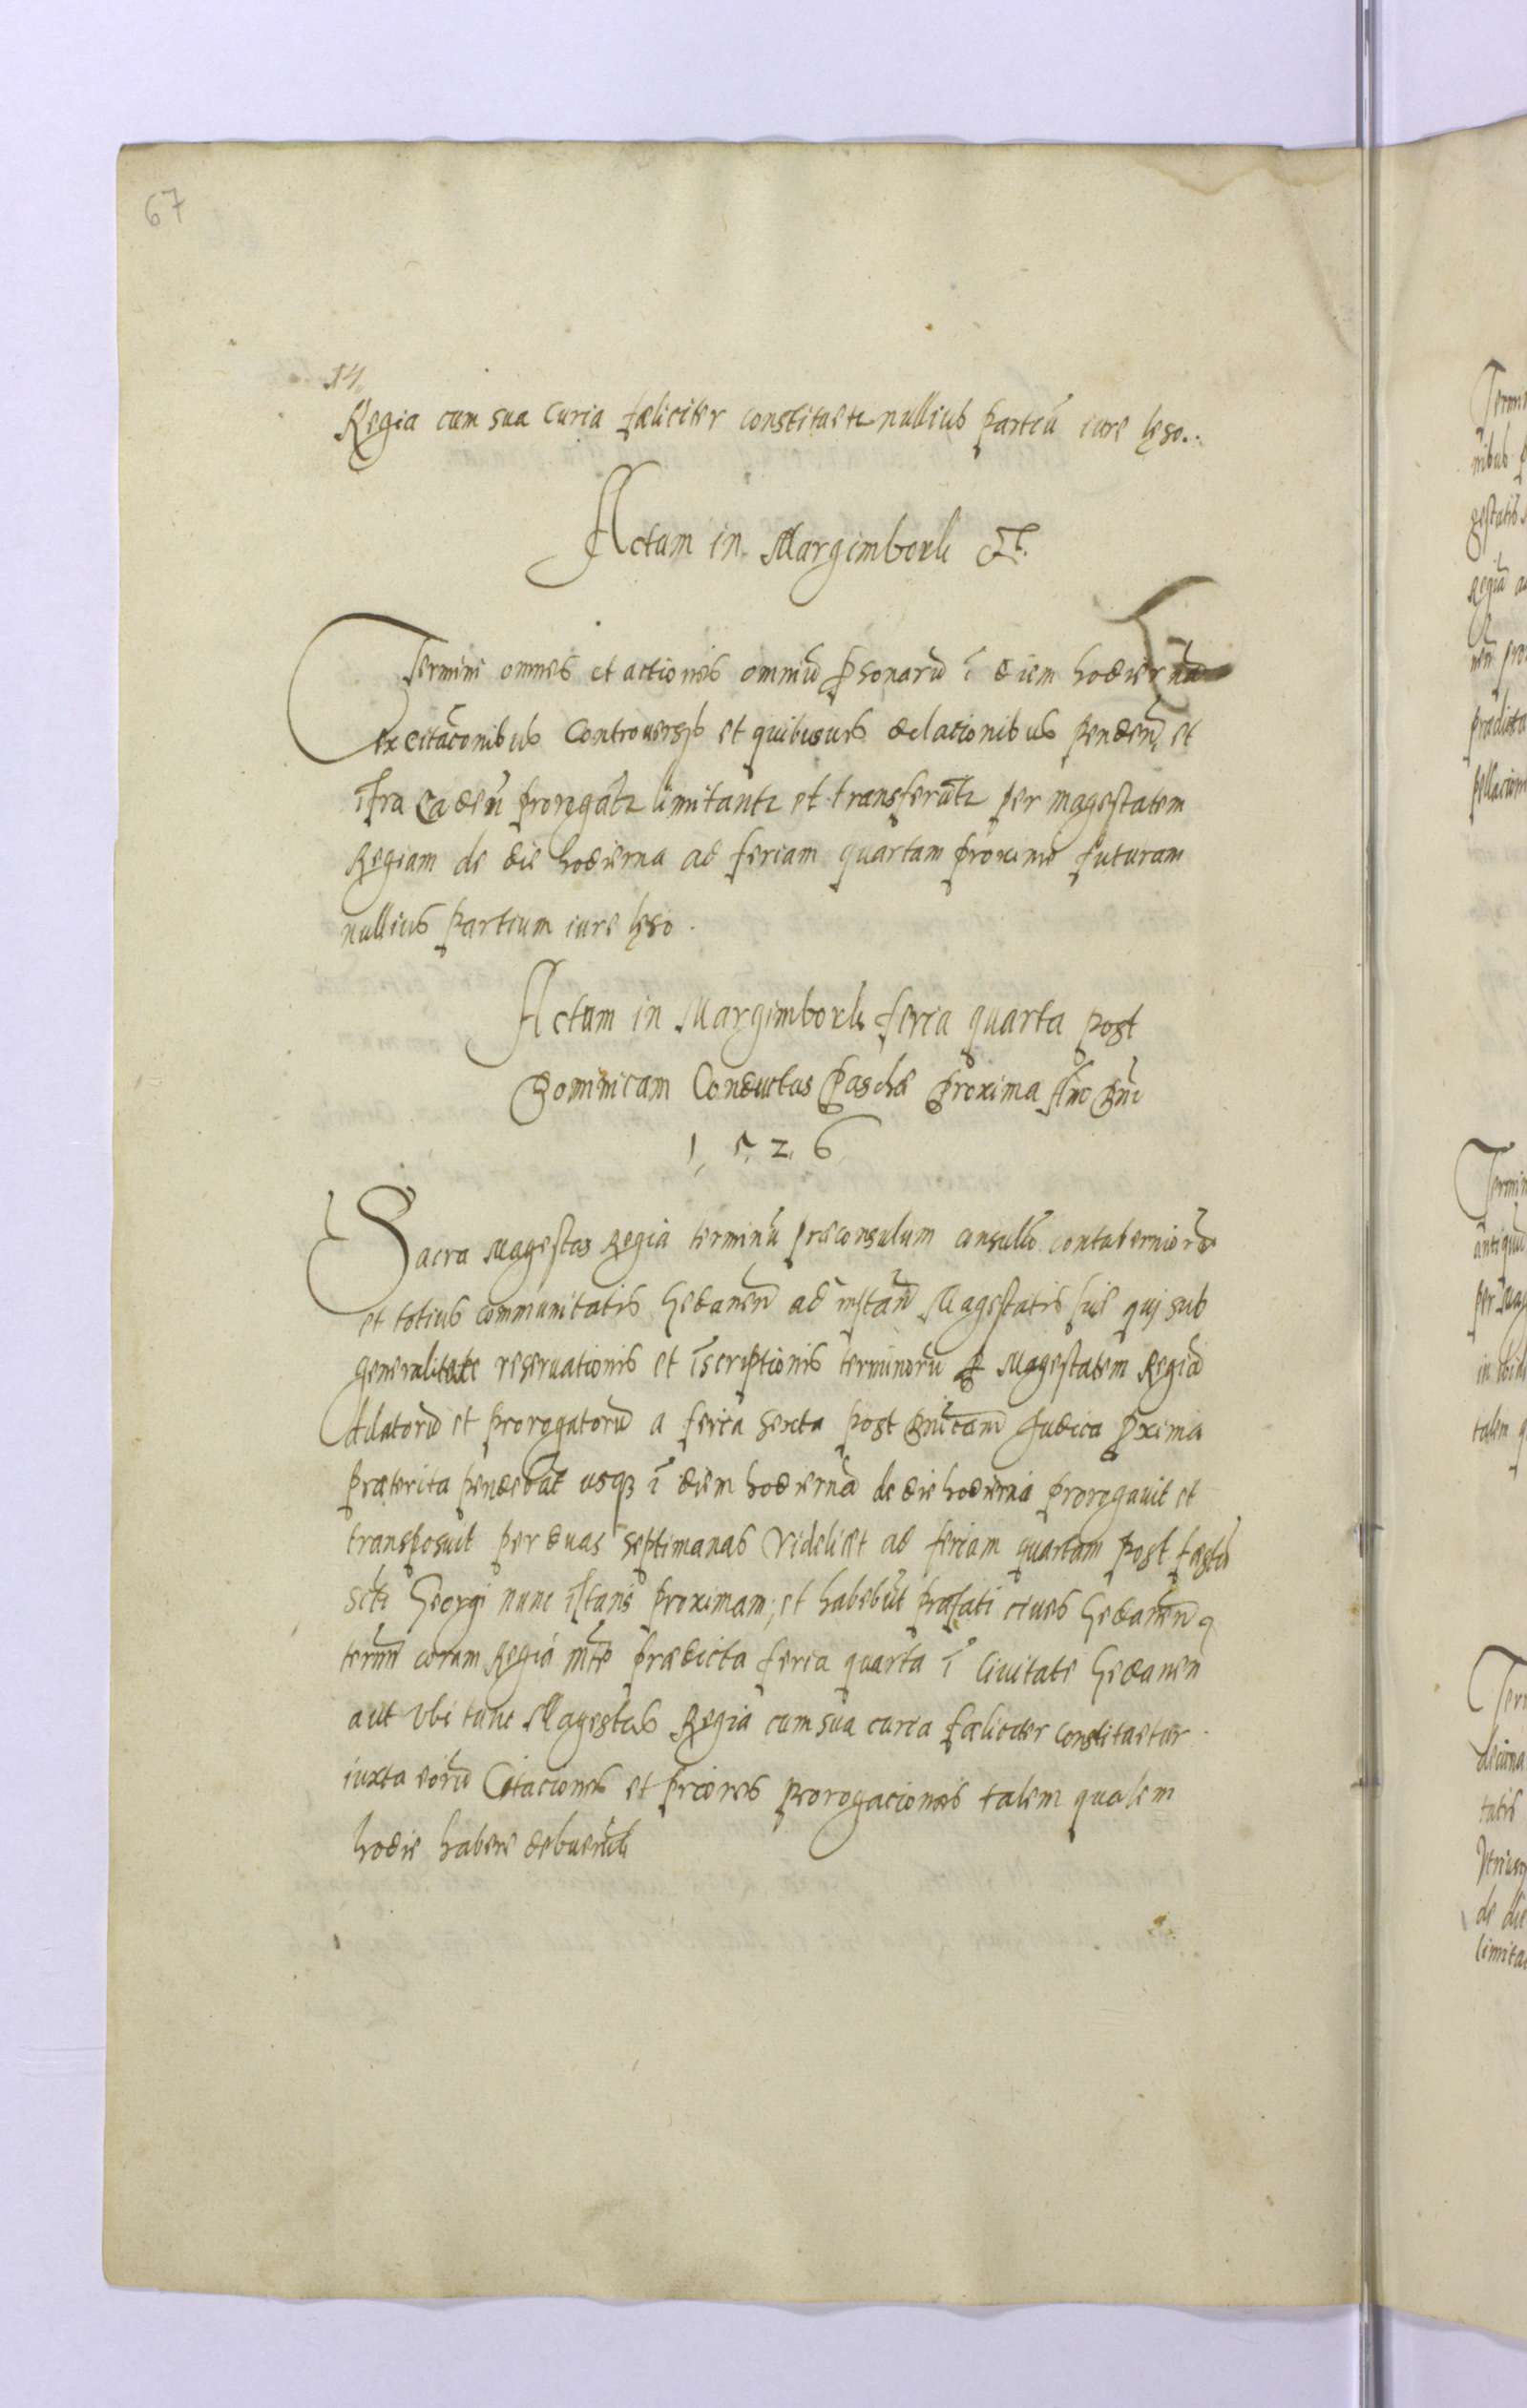 67
14
Regia cum sua Curia fæliciter constituetr nullius partiū iure leso.
Actum in Margimbork Et.
Termini omnes et actiones omniū psonarū ī diem hodiernā
ex citaconibus Controversys et quibusuis delacionibus penden et
īfra caden prorogātr limitantr et transferūtr per magestatem
Regiam de die hodierna ad feriam quartam proxime futuram
nullius partium iure leso.
Actum in Margimbork feria quarta post
Dominicam Conductus Paschæ proxima Año Dñi
1526
Sacra Magestas Regia terminū præconsulum consulū contuberniorū
et totius communitatis Gedanen ad instañ Magestatis suæ qui sub
generalitate reservationis et īscriptionis terminorū p Magestatem Regiā
dilatorū et prorogatorū a feria sexta post Dñicam Judica pxima
præterita pendebāt usq ī diem hodiernā de die hodierna prorogavit et
transposuit per duas septimanas Videlicet ad feriam quartam post fæstū
Scti Georgi nunc īstans proximam, et habebūt præfati cives Gedanen
termñ coram Regia mte prædicta feria quarta ī Civitate Gedanen
aut Ubi tunc Magestas Regia cum sua curia fæliciter constituetur
iuxta eorū Citaciones et priores prorogaciones talem qualem
hodie habere debuerūt
Termi
nibus
gestatis
Regiā
predicta
pellacion
Termin
antiqui
per Mag
talem q
Ter
tatis
de die
limita